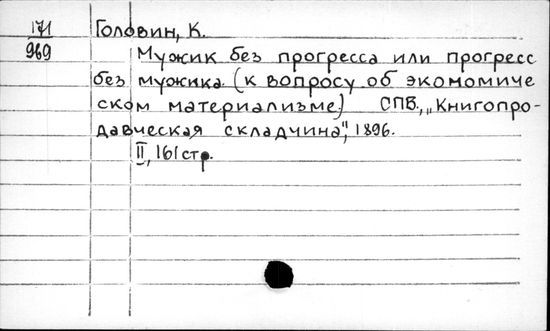 171 Головин, К.
969
Мужик без прогресса или прогресс
без мужика (к вопросу об экомомиче
ском материализме) СПБ., „Книгопро-
давческая складчина", 1896.
II, 161 стр.